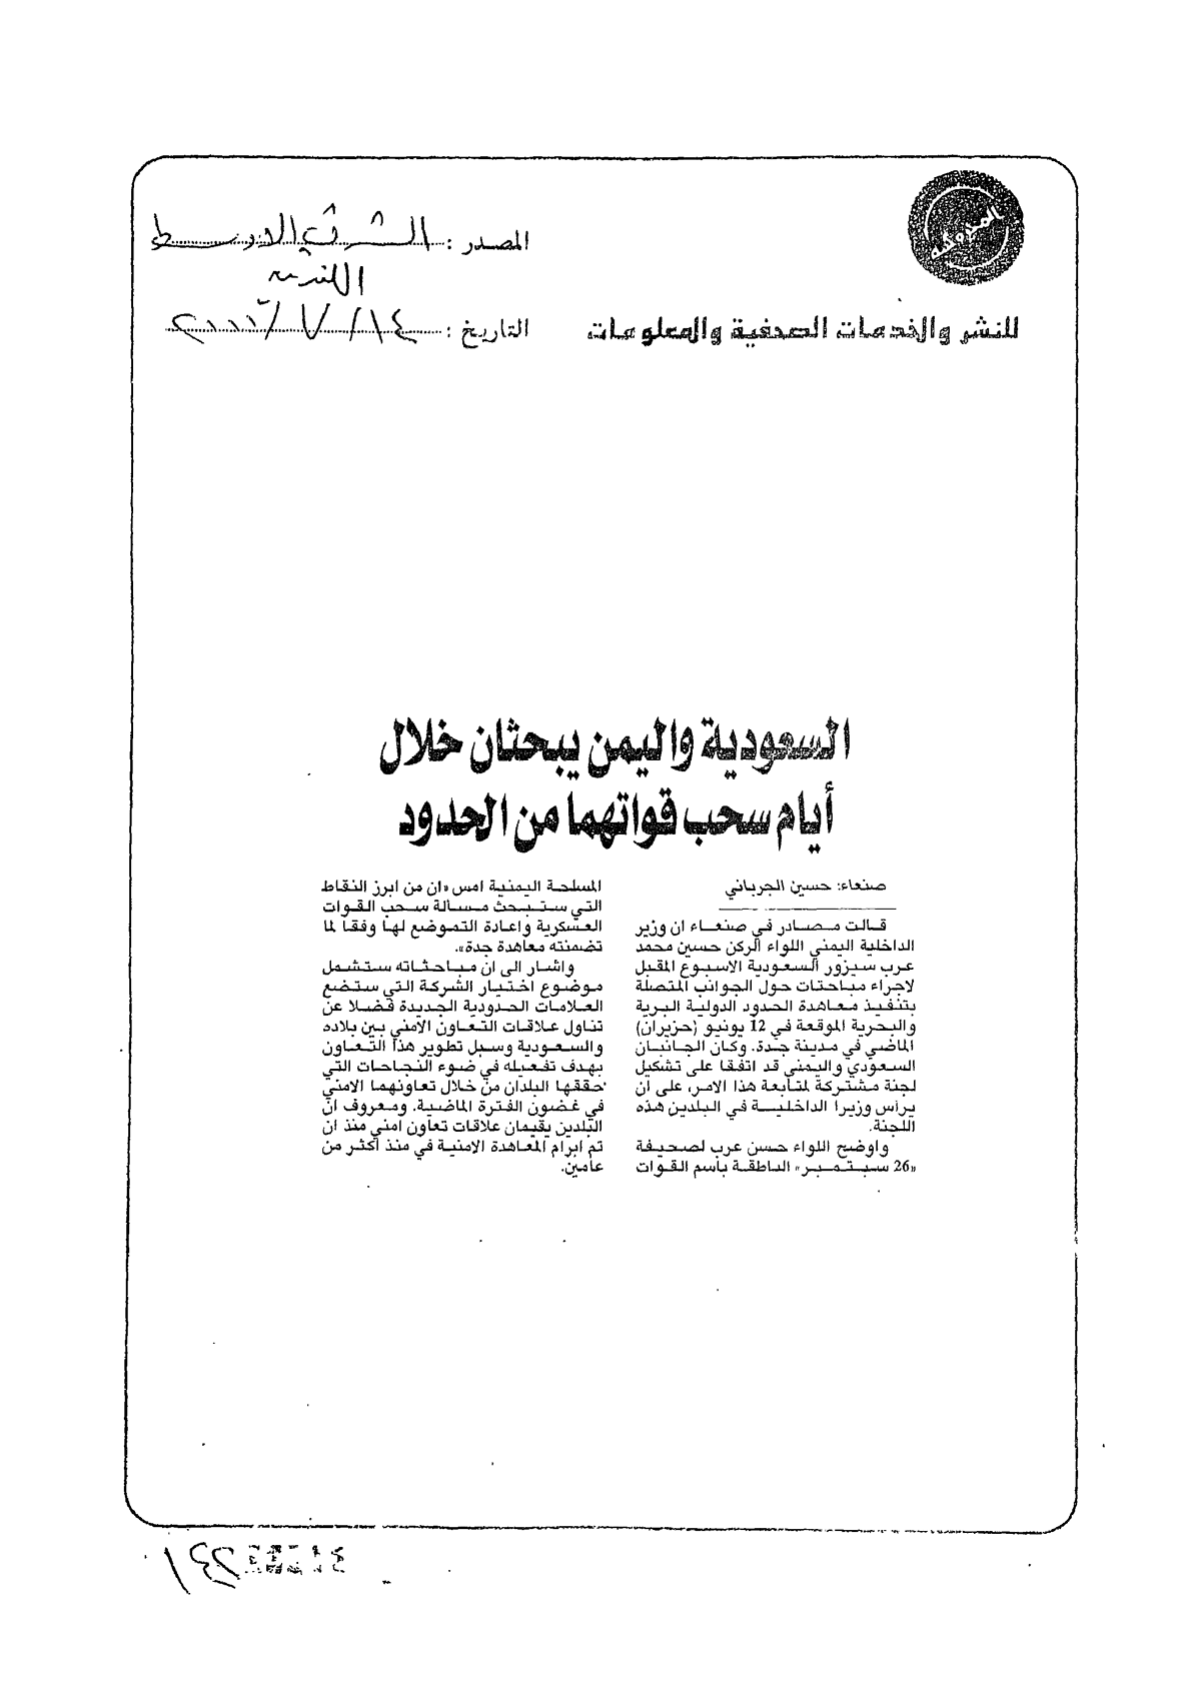 المصدر : الشرق الاوسط
اللندنية
للنشر والخدمات الصحفية والمعلومات
التاريخ : ١٤ / ٧ / ٢٠٠٠
السعودية واليمن يبحثان خلال
أيام سحب قواتهما من الحدود
صنعاء: حسين الجرباني
قالت مصادر في صنعاء ان وزير
الداخلية اليمني اللواء الركن حسين محمد
عرب سيزور السعودية الاسبوع المقبل
لاجراء مباحثات حول الجوانب المتصلة
بتنفيذ معاهدة الحدود الدولية البرية
والبحرية الموقعة في 12 يونيو (حزيران)
الماضي في مدينة جدة. وكان الجانبان
السعودي واليمني قد اتفقا على تشكيل
لجنة مشتركة لمتابعة هذا الامر، على ان
يرأس وزيرا الداخلية في البلدين هذه
اللجنة.
واوضح اللواء حسن عرب لصحيفة
«26 سبتمبر» الناطقة باسم القوات
المسلحة اليمنية امس «ان من ابرز النقاط
التي ستبحث مسالة سحب القوات
العسكرية واعادة التموضع لها وفقا لما
تضمنته معاهدة جدة».
واشار الى ان مباحثاته ستشمل
موضوع اختيار الشركة التي ستضع
العلامات الحدودية الجديدة فضلا عن
تناول علاقات التعاون الامني بين بلاده
والسعودية وسبل تطوير هذا التعاون
بهدف تفعيله في ضوء النجاحات التي
حققها البلدان من خلال تعاونهما الامني
في غضون الفترة الماضية. ومعروف ان
البلدين يقيمان علاقات تعاون امني منذ ان
تم ابرام المعاهدة الامنية في منذ اكثر من
عامين.